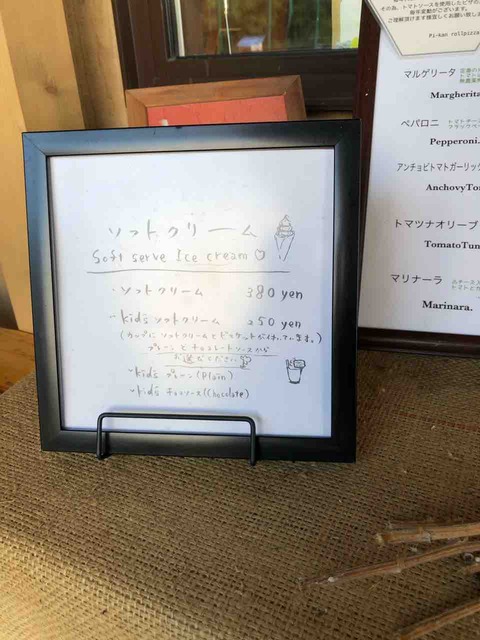 ソフトクリーム
Soft serve Ice cream♡
・ソフトクリーム 380 yen
・kid's ソフトクリーム 250 yen
(カップにソフトクリームとビスケットが付いています。)
プレーンとチョコレートソースから
お選びください
kid's プレーン(Plain)
kid's チョコソース(Chocolate)
その為、トマトソースを使用したピザの
毎年変動がございます。
Pi-kan rollpizza
マルゲリータ
Margherita
ペパロニ
Pepperoni.
アンチョビトマトガーリック
AnchovyTo
トマツナオリーブ
TomatoTun
マリナーラ
Marinara.